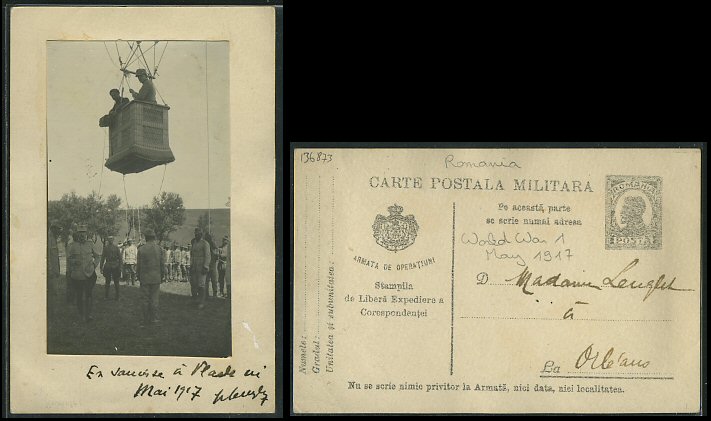 Mai 1917
136873
Romania
CARTE POSTALA MILITARA
Pe această parte
se scrie numai adresa
ROMANIA
POSTA
World War 1
May 1917
ARMATA DE OPERAȚIUNI
Stampila
de Liberă Expediere a
Corespondenței
Numele:
Gradul:
Unitatea și subunitatea:
D Madame
à
La Orléans
Nu se scrie nimic privitor la Armată, nici data, nici localitatea.